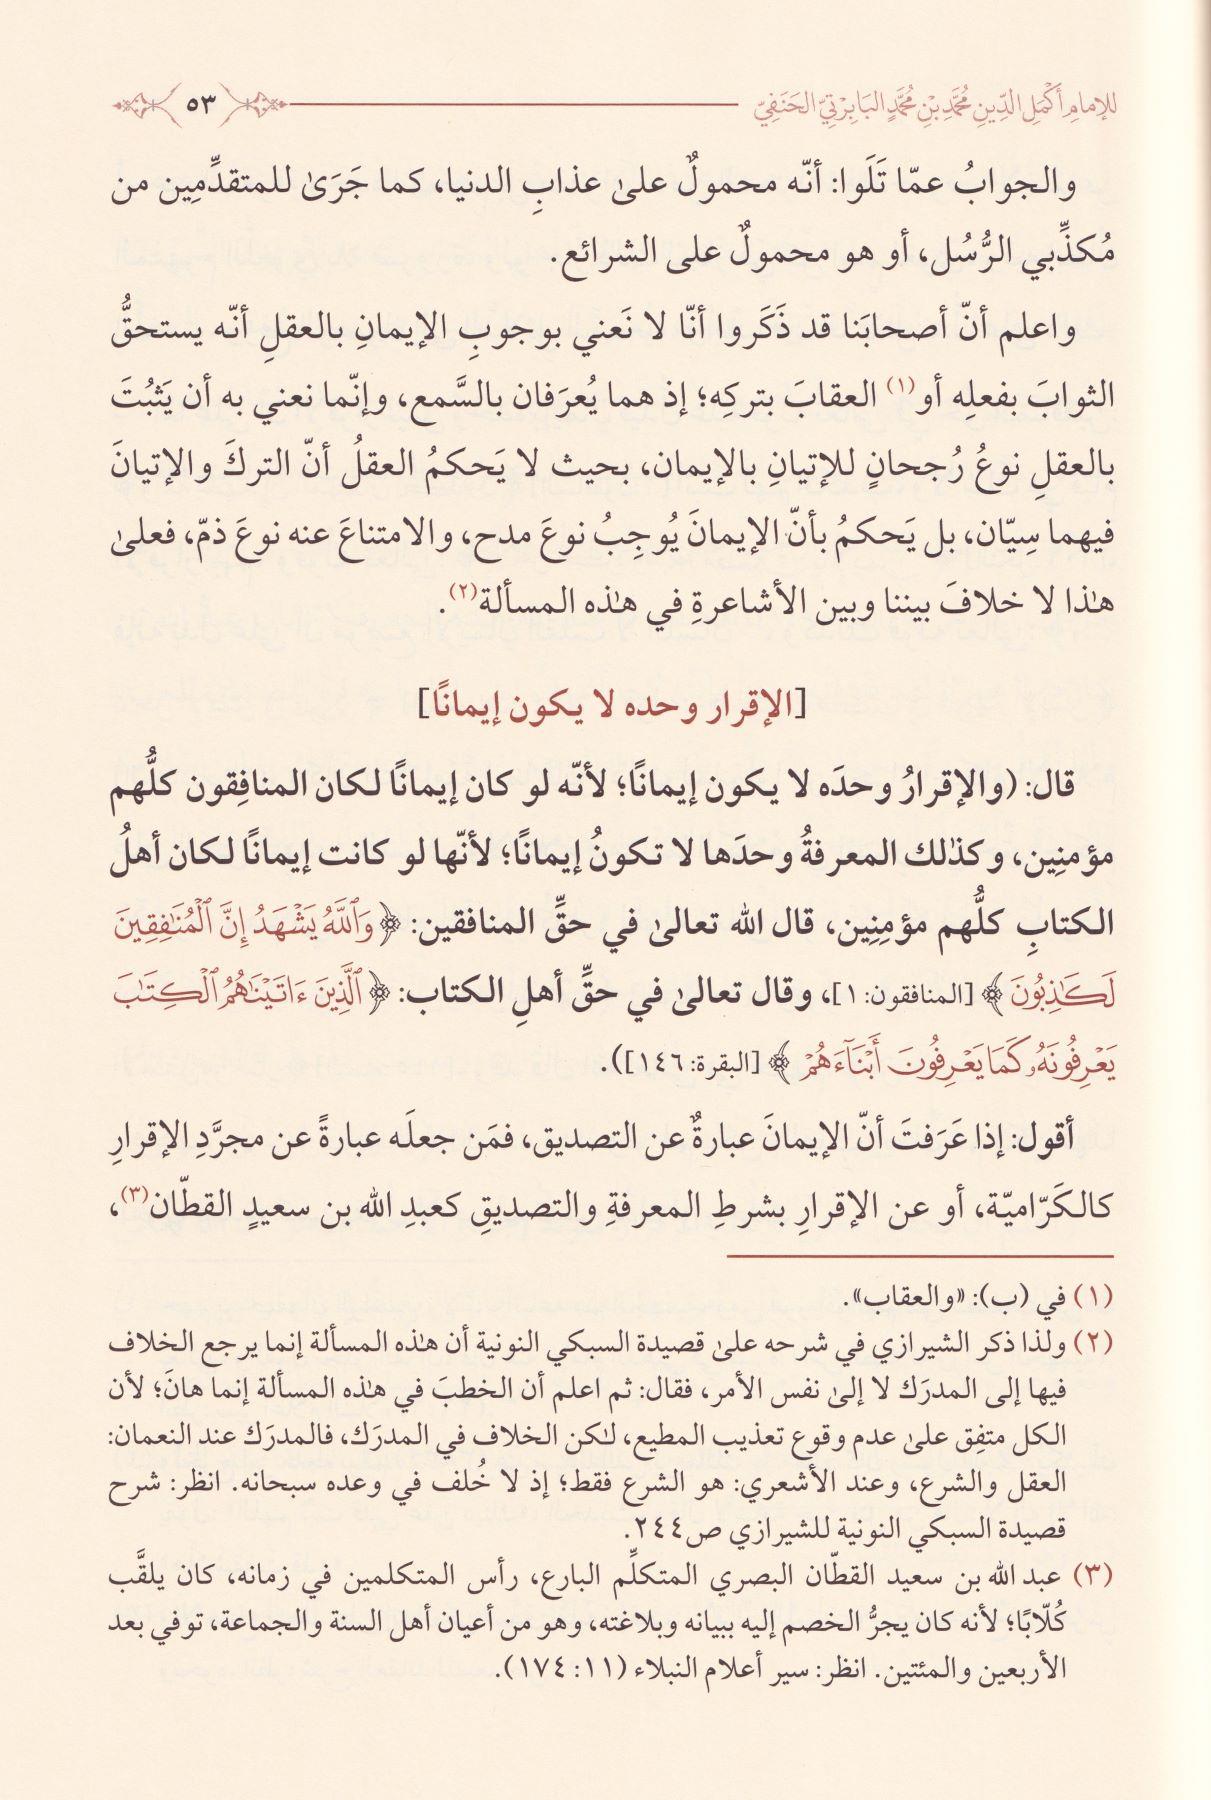 للإمام أكمل الدين محمد بن محمد البابرتي الحنفي ٥٣
والجوابُ عمّا تَلَوا: أنّه محمولٌ علىٰ عذابِ الدنيا، كما جَرَىٰ للمتقدِّمِين من
مُكذِّبي الرُّسُل، أو هو محمولٌ على الشرائع.
واعلم أنّ أصحابَنا قد ذَكَروا أنّا لا نَعني بوجوبِ الإيمانِ بالعقلِ أنّه يستحقُّ
الثوابَ بفعلِه أو(١) العقابَ بتركِه؛ إذ هما يُعرَفان بالسَّمع، وإنّما نعني به أن يَثبُتَ
بالعقلِ نوعُ رُجحانٍ للإتيانِ بالإيمان، بحيث لا يَحكمُ العقلُ أنّ التركَ والإتيانَ
فيهما سِيّان، بل يَحكمُ بأنّ الإيمانَ يُوجِبُ نوعَ مدح، والامتناعَ عنه نوعَ ذمّ، فعلىٰ
هٰذا لا خلافَ بيننا وبين الأشاعرةِ في هٰذه المسألة(٢).
[الإقرار وحده لا يكون إيمانًا]
قال: (والإقرارُ وحدَه لا يكون إيمانًا؛ لأنّه لو كان إيمانًا لكان المنافِقون كلُّهم
مؤمنِين، وكذٰلك المعرفةُ وحدَها لا تكونُ إيمانًا؛ لأنّها لو كانت إيمانًا لكان أهلُ
الكتابِ كلُّهم مؤمِنِين، قال الله تعالىٰ في حقِّ المنافقين: ﴿وَٱللَّهُ يَشْهَدُ إِنَّ ٱلْمُنَٰفِقِينَ
لَكَٰذِبُونَ﴾ [المنافقون: ١]، وقال تعالىٰ في حقِّ أهلِ الكتاب: ﴿ٱلَّذِينَ ءَاتَيْنَٰهُمُ ٱلْكِتَٰبَ
يَعْرِفُونَهُۥ كَمَا يَعْرِفُونَ أَبْنَآءَهُمْ﴾ [البقرة: ١٤٦]).
أقول: إذا عَرَفتَ أنّ الإيمانَ عبارةٌ عن التصديق، فمَن جعلَه عبارةً عن مجرَّدِ الإقرارِ
كالكَرّاميّة، أو عن الإقرارِ بشرطِ المعرفةِ والتصديقِ كعبدِ الله بن سعيدٍ القطّان(٣)،
(١) في (ب): «والعقاب».
(٢) ولذا ذكر الشيرازي في شرحه علىٰ قصيدة السبكي النونية أن هٰذه المسألة إنما يرجع الخلاف
فيها إلى المدرَك لا إلىٰ نفس الأمر، فقال: ثم اعلم أن الخطبَ في هٰذه المسألة إنما هانَ؛ لأن
الكل متفِق علىٰ عدم وقوع تعذيب المطيع، لٰكن الخلاف في المدرَك، فالمدرَك عند النعمان:
العقل والشرع، وعند الأشعري: هو الشرع فقط؛ إذ لا خُلف في وعده سبحانه. انظر: شرح
قصيدة السبكي النونية للشيرازي ص٢٤٤.
(٣) عبد الله بن سعيد القطّان البصري المتكلِّم البارع، رأس المتكلمين في زمانه، كان يلقَّب
كُلّابًا؛ لأنه كان يجرُّ الخصم إليه ببيانه وبلاغته، وهو من أعيان أهل السنة والجماعة، توفي بعد
الأربعين والمئتين. انظر: سير أعلام النبلاء (١١: ١٧٤).